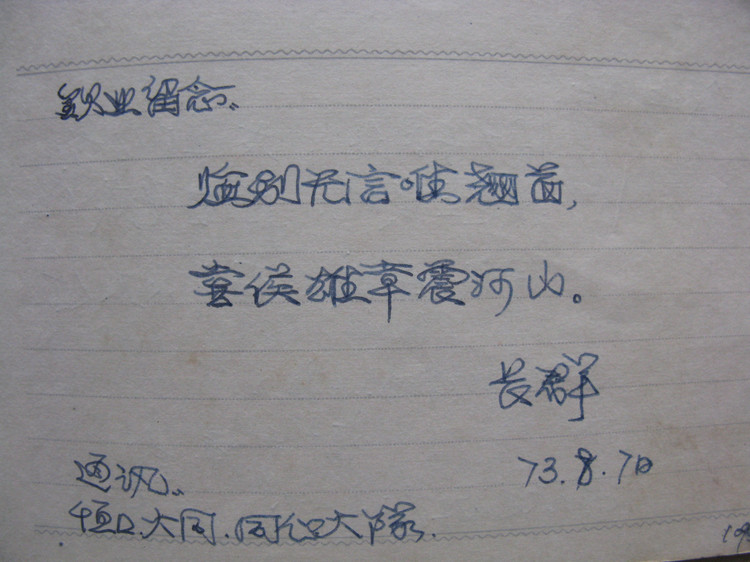 钦业留念、
临别无言唯翘首,
喜侯雄章震河山。
长群
73.8.7日
通讯、
恒口.大同.同心大队.
19